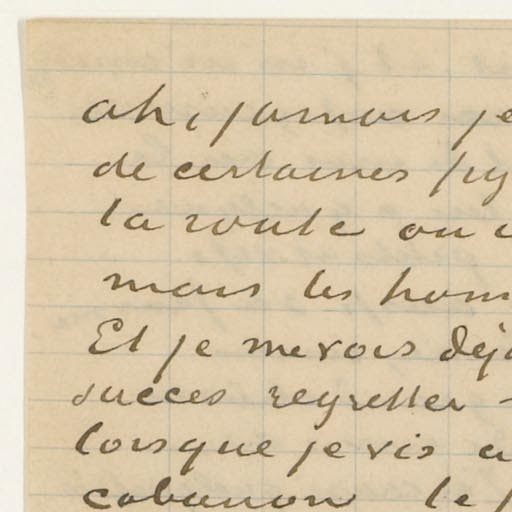 ah, jamais je
de certaines
la route ou
mais les hom
Et je me vois déjà
succes regretter
lorsque je vis a
cabanon le